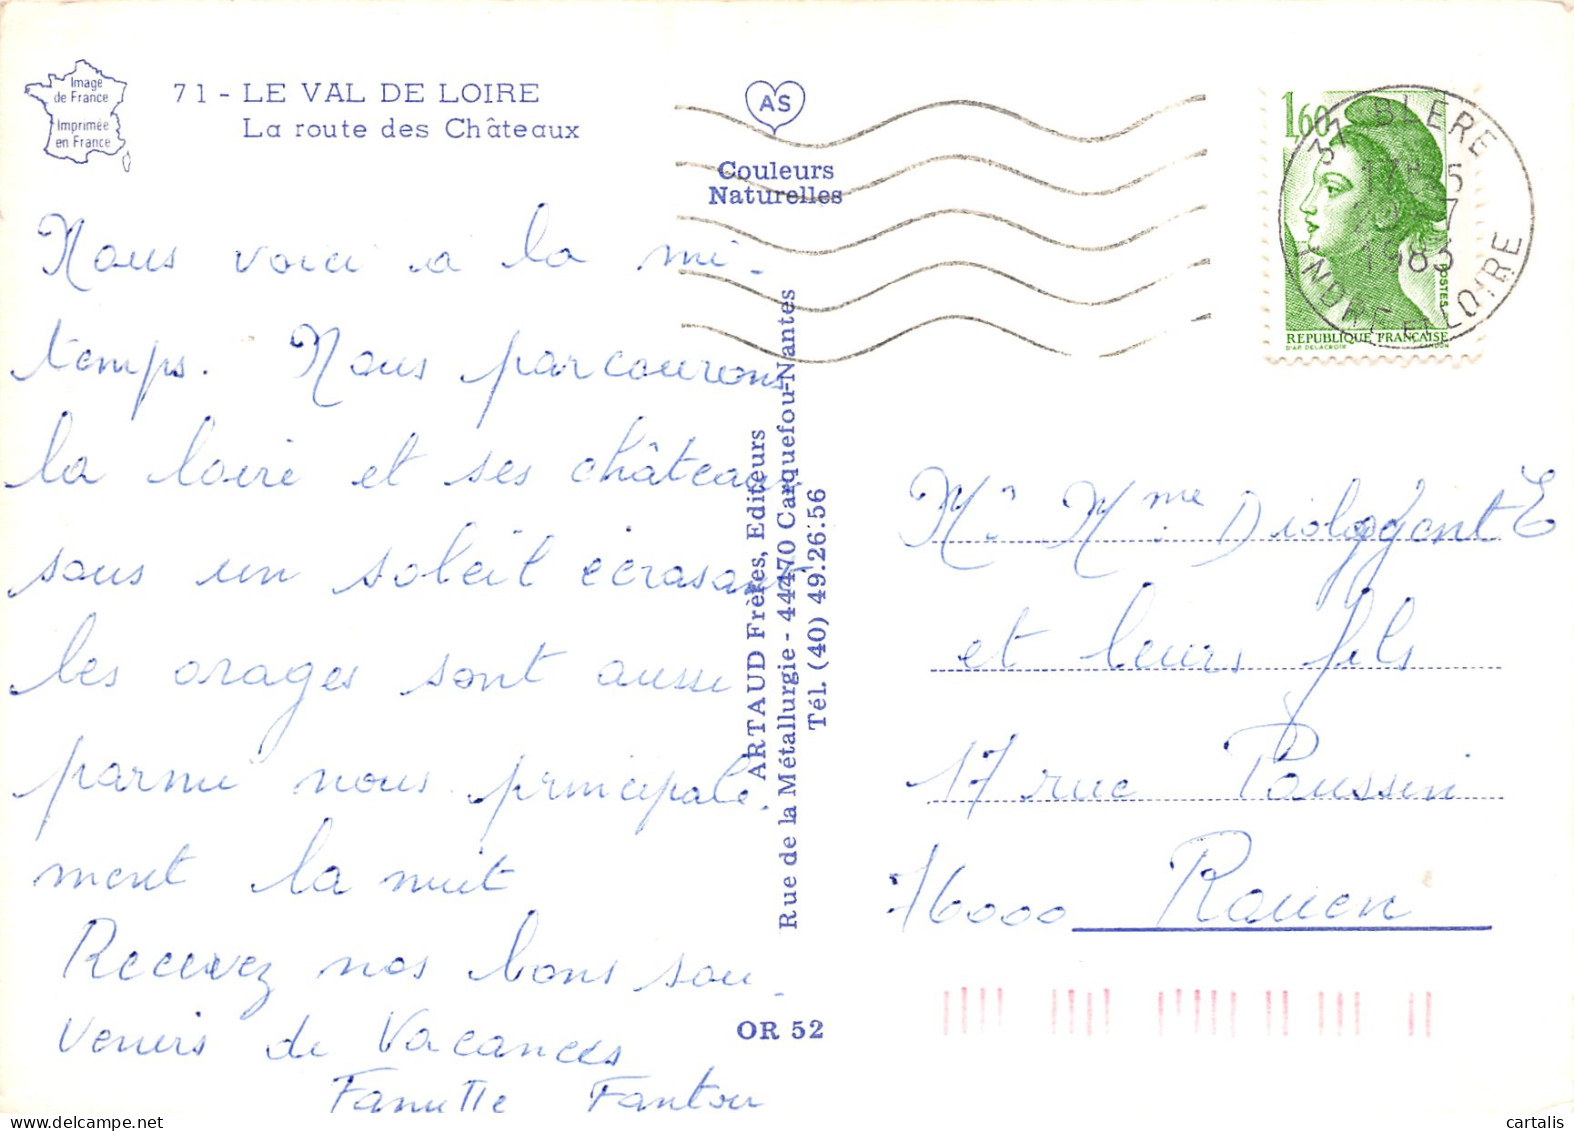 Image
de France
Imprimée
en France
71 - LE VAL DE LOIRE
La route des Châteaux
AS
Couleurs
Naturelles
Nous voici a la mi-
temps. Nous parcourons
la loire et ses châteaux
sous un soleil écrasant
les orages sont aussi
parmi nous principale.
ment la nuit
Recevez nos bons sou-
venirs de Vacances
Fantou
ARTAUD Frères, Editeurs
Rue de la Métallurgie - 44470 Carquefou-Nantes
Tél. (40) 49.26.56
OR 52
1,60
POSTES
REPUBLIQUE FRANÇAISE
D'AP. DELACROIX GANDON
37 BLERE
1983
INDRE-ET-LOIRE
Mr Mme
et leurs fils
17 rue Poussin
76000 Rouen
cartalis